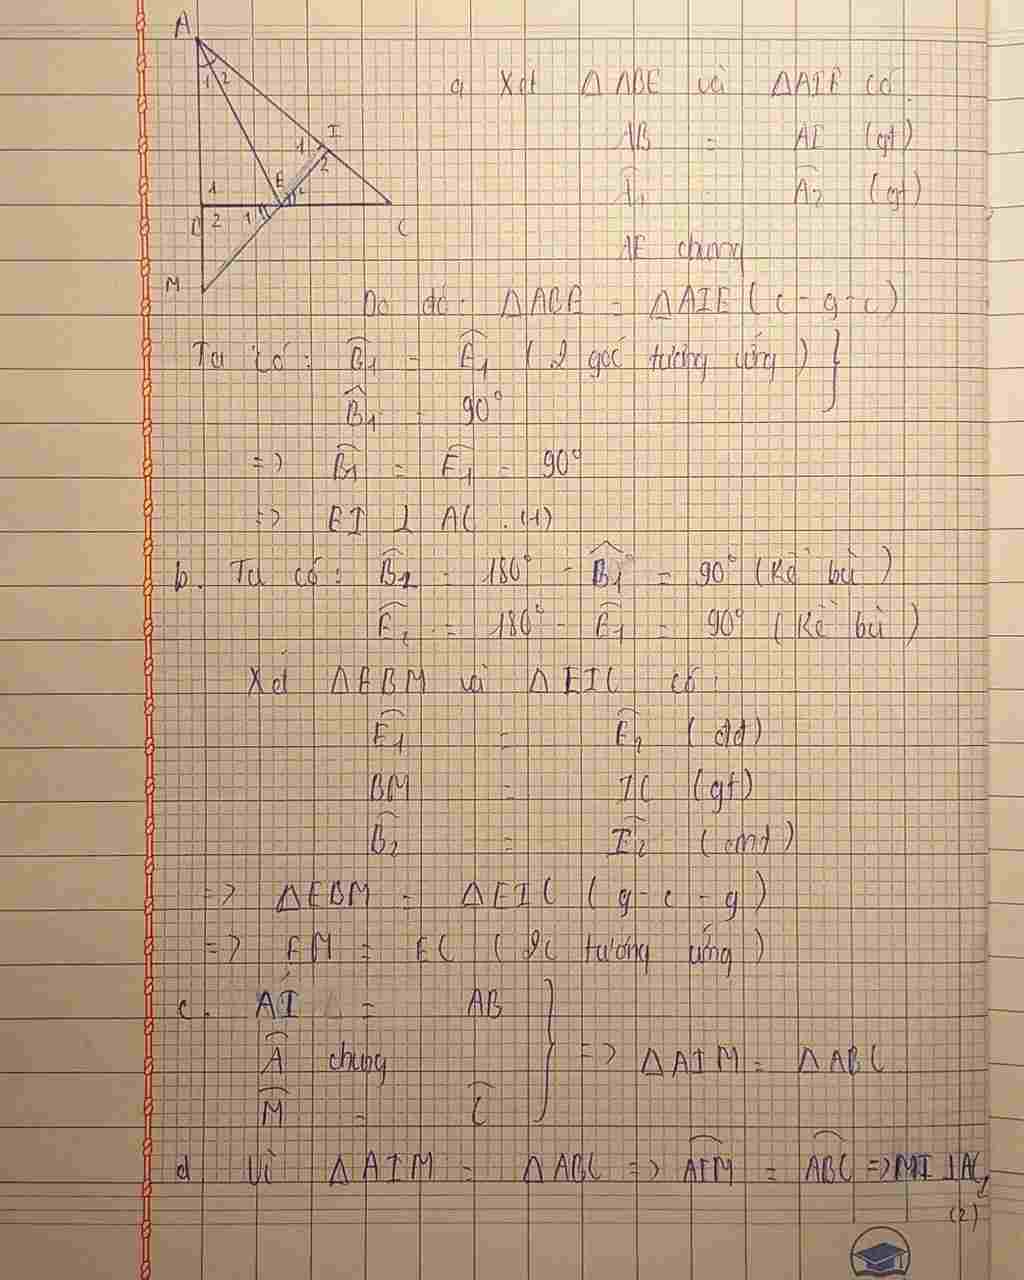 A
1 2
1 I
2
E
1
B 2 1 2
C
M
a, Xét ΔABE và ΔAIE có:
AB = AI (gt)
Â1 = Â2 (gt)
AE chung
Do đó: ΔABE = ΔAIE (c - g - c)
Ta có: B̂1 = Ê1 (2 góc tương ứng) }
B̂1 = 90°
=> B̂1 = Ê1 = 90°
=> EI ⊥ AC. (1)
b. Ta có: B̂2 = 180° - B̂1 = 90° (Kề bù)
Ê2 = 180° - Ê1 = 90° (Kề bù)
Xét ΔEBM và ΔEIC có:
Ê1 = Ê2 (đđ)
BM = IC (gt)
B̂2 = Î2 (cmt)
=> ΔEBM = ΔEIC (g - c - g)
=> EM = EC (2c tương ứng)
c. AI = AB
 chung } => ΔAIM = ΔABC
M̂ = Ĉ
d Vì ΔAIM = ΔABC => AIM = ABC => MI ⊥ AC,
(2)